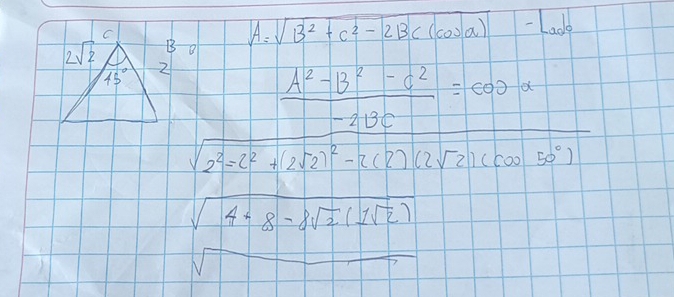 C
2√2
45°
B
2
A = √B² + c² - 2Bc (cos a) - Lado
A² - B² - c²
-2BC
= cos α
√2² = 2² + (2√2)² - 2(2)(2√2)(cos 50°)
√4 + 8 - 8√2 (1√2)
√